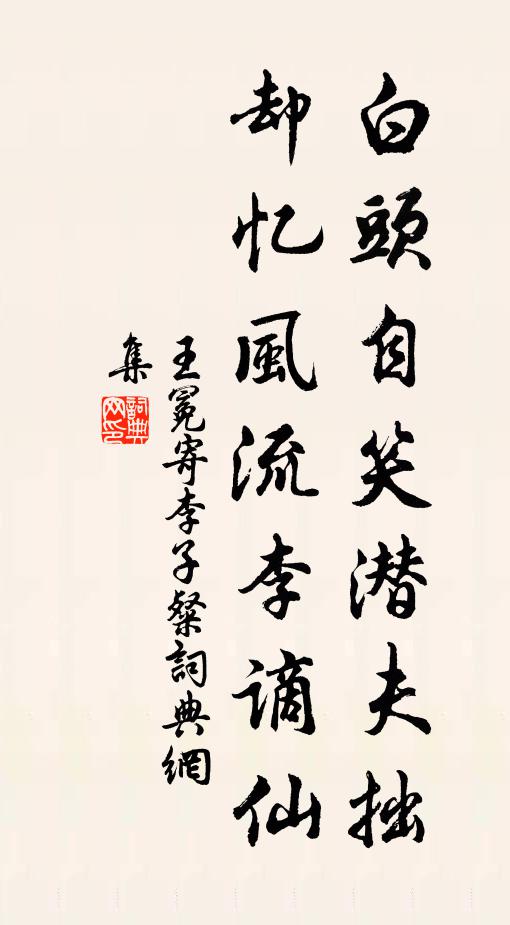 白頭自笑潜夫拙
却忆風流李谪仙
王冕寄李子粲詞典網
集
詞典網印